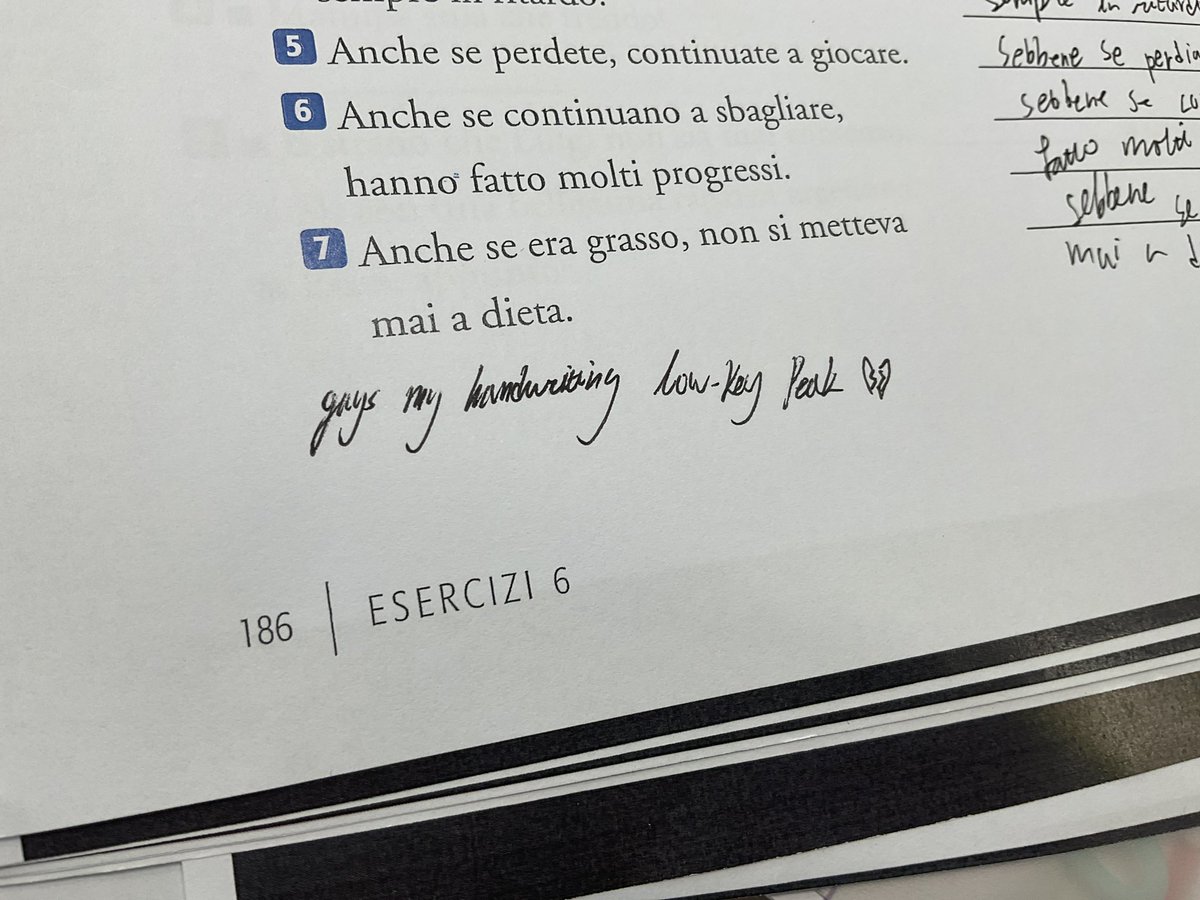 sempre in ritardo.
5 Anche se perdete, continuate a giocare.
6 Anche se continuano a sbagliare,
hanno fatto molti progressi.
7 Anche se era grasso, non si metteva
mai a dieta.
sempre in
sebbene se
sebbene se
fatto molti
sebbene se
mai a
guys my handwriting low-key peak
186 | ESERCIZI 6